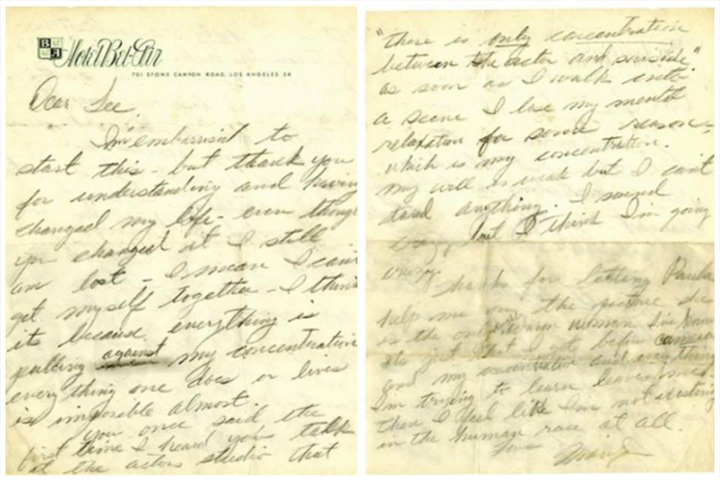 B
A
Hotel Bel-Air
701 STONE CANYON ROAD, LOS ANGELES 24
Dear Lee,
I'm embarrised to
start this - but thank you
for understanding and having
changed my life - even though
you changed it I still
am lost - I mean I can't
get myself together - I think
its because everything is
pulling against my concentration
everything one does or lives
is imposible almost.
you once said, the
first time I heard you talk
at the actors studio that
"there is only concentration
between the actor and suicide"
as soon as I walk into
a scene I lose my mental
relaxation for some reason,
which is my concentration.
my will is weak but I can't
stand anything. I sound
crazy but I think I'm going
crazy.
Thanks for letting Paula
help me on the picture she
is the only woman I've known
Its just that I get before camera
and my concentration and everything
I'm trying to learn leaves me.
then I feel like I'm not existing
in the human race at all.
Love
Marilyn